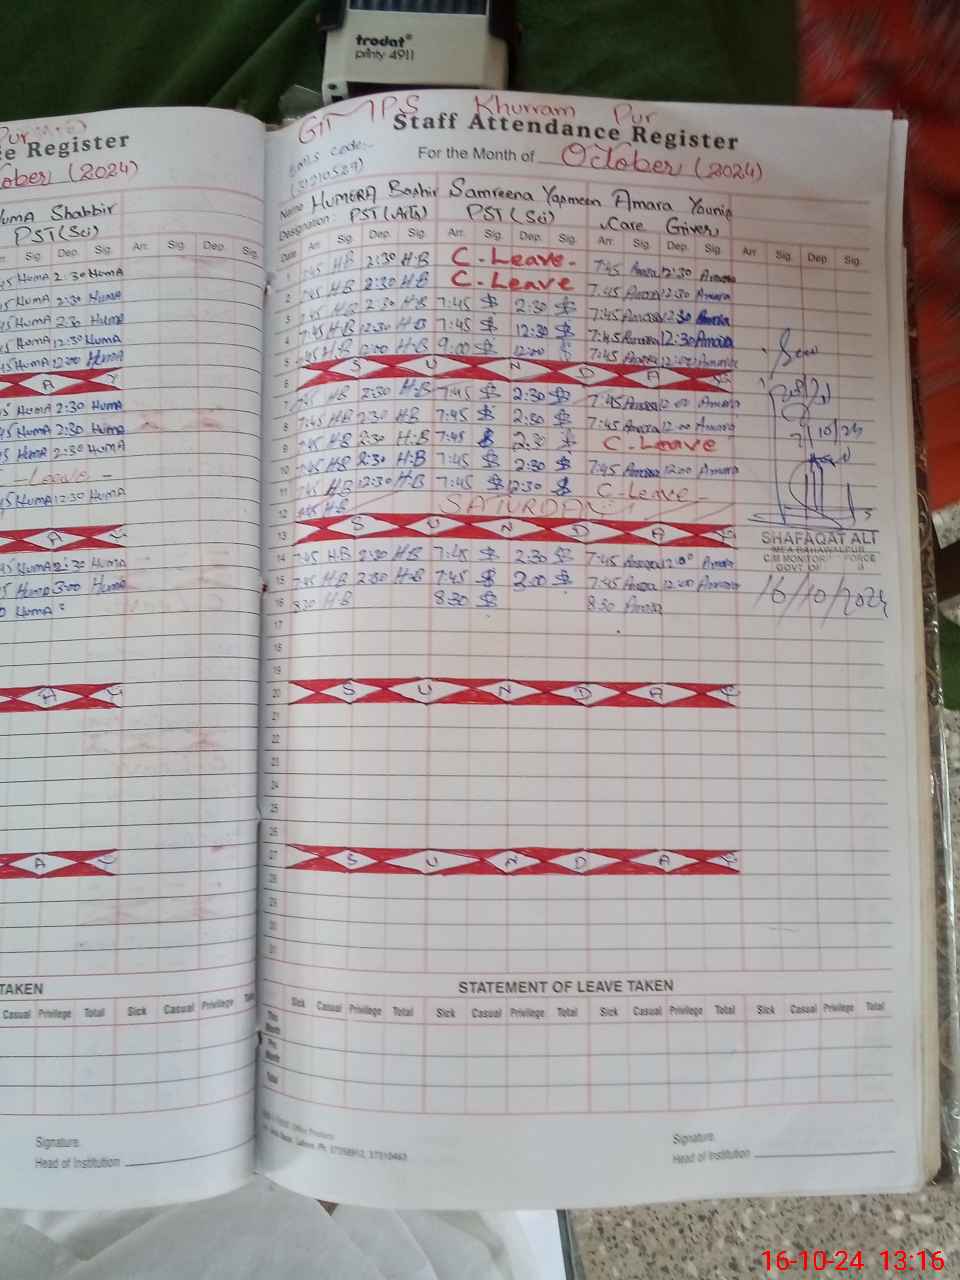 trodat®
printy 4911
GMPS Khurram Pur
Staff Attendance Register
For the Month of October (2024)
EMIS code:-
(31210587)
Name HUMERA Bashir Samreena Yasmeen Amara Younis
Designation: PST(Arts) PST (Sci) Care Giver
Date Arr. Sig. Dep. Sig. Arr. Sig. Dep. Sig. Arr. Sig. Dep. Sig. Arr. Sig. Dep. Sig.
1 7:45 H-B 2:30 H-B C-Leave- 7:45 Amara 12:30 Amara
2 7:45 H-B 2:30 H-B C-Leave 7:45 Amara 12:30 Amara
3 7:45 H-B 2:30 H-B 7:45 2:30 7:45 Amara 12:30 Amara
4 7:45 H-B 12:30 H-B 7:45 12:30 7:45 Amara 12:30 Amara
5 7:45 H-B 2:00 H-B 9:00 12:00 7:45 Amara 12:00 Amara
6 S U N D A Y
7 7:45 H-B 2:30 H-B 7:45 2:30 7:45 Amara 12:00 Amara
8 7:45 H-B 2:30 H-B 7:45 2:30 7:45 Amara 12:00 Amara
9 7:45 H-B 2:30 H-B 7:45 2:30 C-Leave
10 7:45 H-B 2:30 H-B 7:45 2:30 7:45 Amara 12:00 Amara
11 7:45 H-B 12:30 H-B 7:45 12:30 C-Leave
12 H-B SATURDAY
13 S U N D A Y
14 7:45 H-B 2:30 H-B 7:45 2:30 7:45 Amara 12:00 Amara
15 7:45 H-B 2:30 H-B 7:45 2:00 7:45 Amara 12:00 Amara
16 8:30 H-B 8:30 8:30 Amara
17
18
19
20 S U N D A Y
21
22
23
24
25
26
27 S U N D A Y
28
29
30
31
SHAFAQAT ALI
MEA BAHAWALPUR
C.M MONITORING FORCE
16/10/2024
STATEMENT OF LEAVE TAKEN
Sick Casual Privilege Total Sick Casual Privilege Total Sick Casual Privilege Total Sick Casual Privilege Total
This Month
Pre. Month
Total
Signature.
Head of Institution
Pur
e Register
ober (2024)
Huma Shabbir
PST(Sci)
Sig. Dep. Sig. Arr. Sig. Dep. Sig.
45 Huma 2:30 Huma
45 Huma 2:30 Huma
45 Huma 2:30 Huma
45 Huma 12:30 Huma
45 Huma 12:00 Huma
A Y
45 Huma 2:30 Huma
45 Huma 2:30 Huma
45 Huma 2:30 Huma
-Leave-
45 Huma 12:30 Huma
A Y
45 Huma 2:30 Huma
45 Huma 3:00 Huma
Huma
A Y
A Y
TAKEN
Casual Privilege Total Sick Casual Privilege
Signature.
Head of Institution
16-10-24 13:16